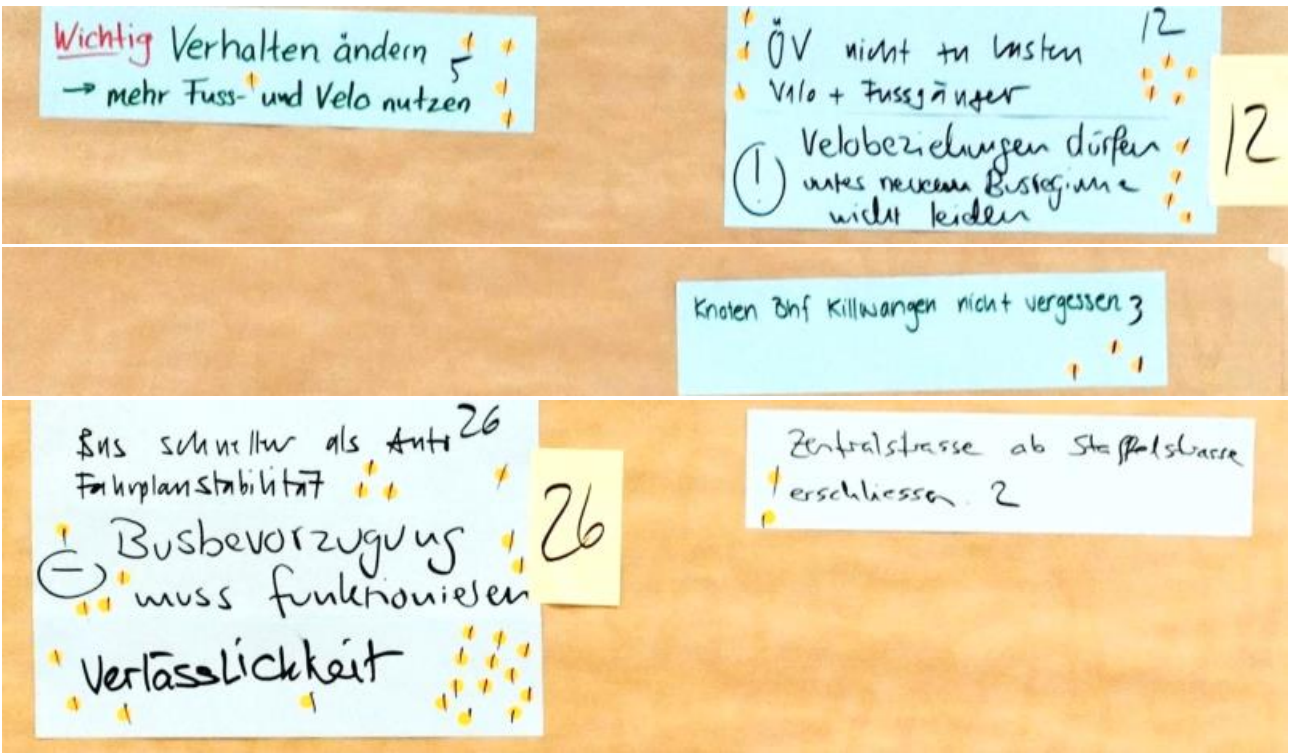 Wichtig Verhalten ändern 5
→ mehr Fuss- und Velo nutzen
12
ÖV nicht zu lasten
Velo + Fussgänger
! Velobeziehungen dürfen
unter neuem Busregime
nicht leiden
12
Knoten Bhf Killwangen nicht vergessen 3
Bus schneller als Auto 26
Fahrplanstabilität
Busbevorzugung
muss funktionieren
Verlässlichkeit
26
Zentralstrasse ab Staffelstrasse
erschliessen. 2